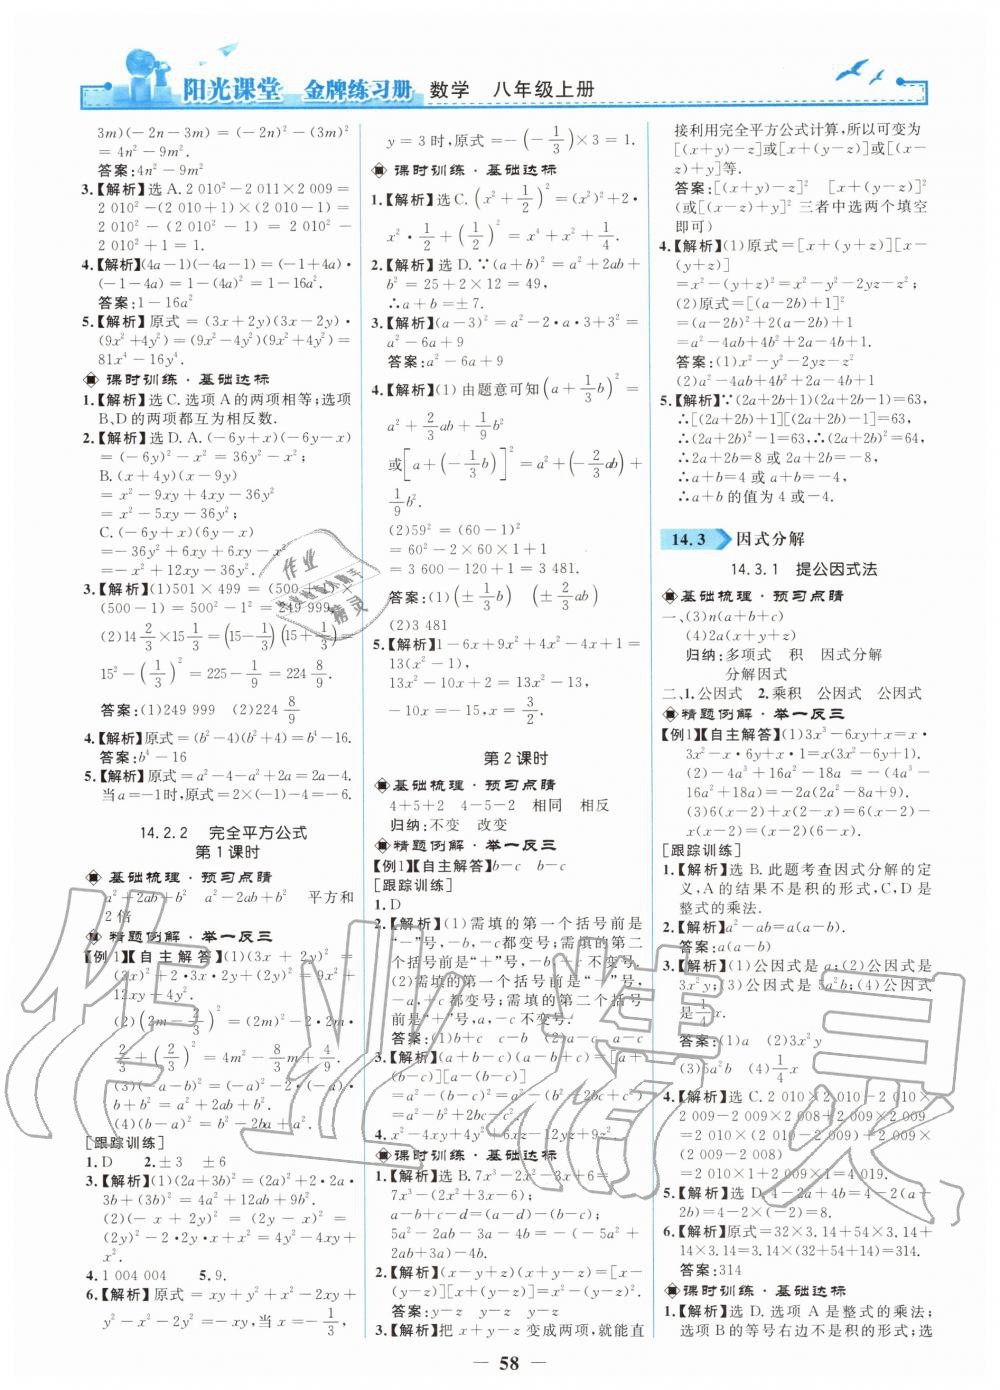 阳光课堂 金牌练习册 数学 八年级上册
3m)(-2n-3m)=(-2n)²-(3m)²
=4n²-9m².
答案:4n²-9m²
3.【解析】选 A.2 010²-2 011×2 009=
2 010²-(2 010+1)×(2 010-1)=
2 010²-(2 010²-1)=2 010²-
2 010²+1=1.
4.【解析】(4a-1)(-4a-1)=(-1+4a)·
(-1-4a)=(-1)²-(4a)²=1-16a².
答案:1-16a²
5.【解析】原式=(3x+2y)(3x-2y)·
(9x²+4y²)=(9x²-4y²)(9x²+4y²)=
81x⁴-16y⁴.
课时训练·基础达标
1.【解析】选 C.选项 A 的两项相等;选项
B、D 的两项都互为相反数.
2.【解析】选 D. A.(-6y+x)(-6y-x)
=(-6y)²-x²=36y²-x²;
B.(x+4y)(x-9y)
=x²-9xy+4xy-36y²
=x²-5xy-36y²;
C.(-6y+x)(6y-x)
=-x²+6xy+6xy-36y²
3.【解析】(1)501×499=(500+1)×
(500-1)=500²-1²=249 999.
(2)14 2/3×15 1/3=(15-1/3)(15+1/3)=
15²-(1/3)²=225-1/9=224 8/9
答案:(1)249 999 (2)224 8/9
4.【解析】原式=(b²-4)(b²+4)=b⁴-16.
答案:b⁴-16
5.【解析】原式=a²-4-a²+2a=2a-4.
当a=-1时,原式=2×(-1)-4=-6.
14.2.2 完全平方公式
第1课时
基础梳理·预习点睛
a²+2ab+b² a²-2ab+b² 平方和
2倍
精题例解·举一反三
【例1】【自主解答】(1)(3x+2y)²=
(3x)²+2·3x·2y+(2y)²=9x²+
12xy+4y².
(2)(2m-2/3)²=(2m)²-2·2m·
2/3+(2/3)²=4m²-8/3m+4/9
(3)(-a-b)²=(-a)²-2·(-a)·
b+b²=a²+2ab+b².
(4)(b-a)²=b²-2ba+a².
[跟踪训练]
1.D 2.±3 ±6
3.【解析】(1)(2a+3b)²=(2a)²+2·2a·
3b+(3b)²=4a²+12ab+9b².
(2)(-x+2y)²=(2y-x)²=
(2y)²-2·2y·x+x²=4y²-4xy+
x².
4.1 004 004 5.9.
6.【解析】原式=xy+y²-x²-2xy-
y²-x²=-2x²-xy,当x=-1/3,
y=3时,原式=-(-1/3)×3=1.
课时训练·基础达标
1.【解析】选C.(x²+1/2)²=(x²)²+2·
x²·1/2+(1/2)²=x⁴+x²+1/4.
2.【解析】选 D.∵(a+b)²=a²+2ab+
b²=25+2×12=49,
∴a+b=±7.
3.【解析】(a-3)²=a²-2·a·3+3²
=a²-6a+9
答案:a²-6a+9
4.【解析】(1)由题意可知(a+1/3b)²=
a²+2/3ab+1/9b²
或[a+(-1/3b)]²=a²+(-2/3ab)+
1/9b².
(2)59²=(60-1)²
=60²-2×60×1+1²
=3 600-120+1=3 481.
答案:(1)(±1/3b)(±2/3ab)
(2)3 481
5.【解析】1-6x+9x²+4x²-4x+1=
13(x²-1),
13x²-10x+2=13x²-13,
-10x=-15,x=3/2.
第2课时
基础梳理·预习点睛
4+5+2 4-5-2 相同 相反
归纳:不变 改变
精题例解·举一反三
【例1】【自主解答】b-c b-c
[跟踪训练]
1.D
2.【解析】(1)需填的第一个括号前是
“-”号,-b,-c都变号;需填的第二
个括号前是“+”号,-b,-c不变号.
(2)需填的第一个括号前是“-”号,
-a,+c都变号;需填的第二个括号
前是“+”号,-a,+c不变号.
答案:(1)b+c c-b (2)a-c a-c
3.【解析】(a+b-c)(a-b+c)=[a+
(b-c)][a-(b-c)]
=a²-(b-c)²=a²-(b²-2bc+c²)
=a²-b²+2bc-c².
4.x²-4xy+4y²+6xz-12yz+9z²
课时训练·基础达标
1.【解析】选 B.7x³-2x²-3x+6=
7x³-(2x²+3x-6);
a-b+c-d=(a-d)-(b-c);
5a²-2ab-2a+b=5a²-(2ab+
2a-b).
2.【解析】(x-y+z)(x+y-z)=[x-
(y-z)][x+(y-z)]=x²-(y-z)².
答案:y-z y-z y-z
3.【解析】把x+y-z变成两项,就能直
接利用完全平方公式计算,所以可变为
[(x+y)-z]或[x+(y-z)]或[(x-
z)+y]等.
答案:[(x+y)-z]² [x+(y-z)]²
(或[(x-z)+y]² 三者中选两个填空
即可)
4.【解析】(1)原式=[x+(y+z)][x-
(y+z)]
=x²-(y+z)²=x²-y²-2yz-z²;
(2)原式=[(a-2b)+1]²
=(a-2b)²+2(a-2b)+1
=a²-4ab+4b²+2a-4b+1.
答案:(1)x²-y²-2yz-z²
(2)a²-4ab+4b²+2a-4b+1
5.【解析】∵(2a+2b+1)(2a+2b-1)=63,
∴[(2a+2b)+1][(2a+2b)-1]=63,
∴(2a+2b)²-1=63,∴(2a+2b)²=64,
∴2a+2b=8或2a+2b=-8,
∴a+b=4或a+b=-4.
∴a+b的值为4或-4.
14.3 因式分解
14.3.1 提公因式法
基础梳理·预习点睛
一、(3)n(a+b+c)
(4)2a(x+y+z)
归纳:多项式 积 因式分解
分解因式
二、1.公因式 2.乘积 公因式 公因式
精题例解·举一反三
【例1】【自主解答】(1)3x³-6xy+x=x·
3x²-x·6y+x·1=x(3x²-6y+1).
(2)-4a³+16a²-18a=-(4a³-
16a²+18a)=-2a(2a²-8a+9).
(3)6(x-2)+x(2-x)=6(x-2)-
x(x-2)=(x-2)(6-x).
[跟踪训练]
1.【解析】选 B. 此题考查因式分解的定
义,A的结果不是积的形式,C、D是
整式的乘法.
2.【解析】a²-ab=a(a-b).
答案:a(a-b)
3.【解析】(1)公因式是a;(2)公因式是
3x²y;(3)公因式是5a²b;(4)公因式
是1/4x.
答案:(1)a (2)3x²y
(3)5a²b (4)1/4x
4.【解析】选 C.2 010×2 010-2 010×
2 009-2 009×2 008+2 009×2 009
=2 010×(2 010-2 009)-2 009×
(2 008-2 009)
=2 010×1+2 009×1=4 019.
5.【解析】选 D.4-2a+4b=4-2(a-
b)=4-2×(-2)=8.
6.【解析】原式=32×3.14+54×3.14+
14×3.14=3.14×(32+54+14)=314.
答案:314
课时训练·基础达标
1.【解析】选 D. 选项 A 是整式的乘法;
选项B的等号右边不是积的形式;选
58